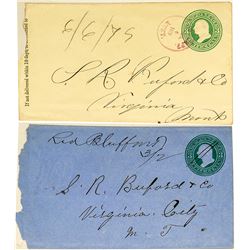 If not delivered within 10 days, to be returned to
6/6/79
S. R. Buford & Co
Virginia
Mont
Red Bluff
3/2
S. R. Buford & Co
Virginia City
M T